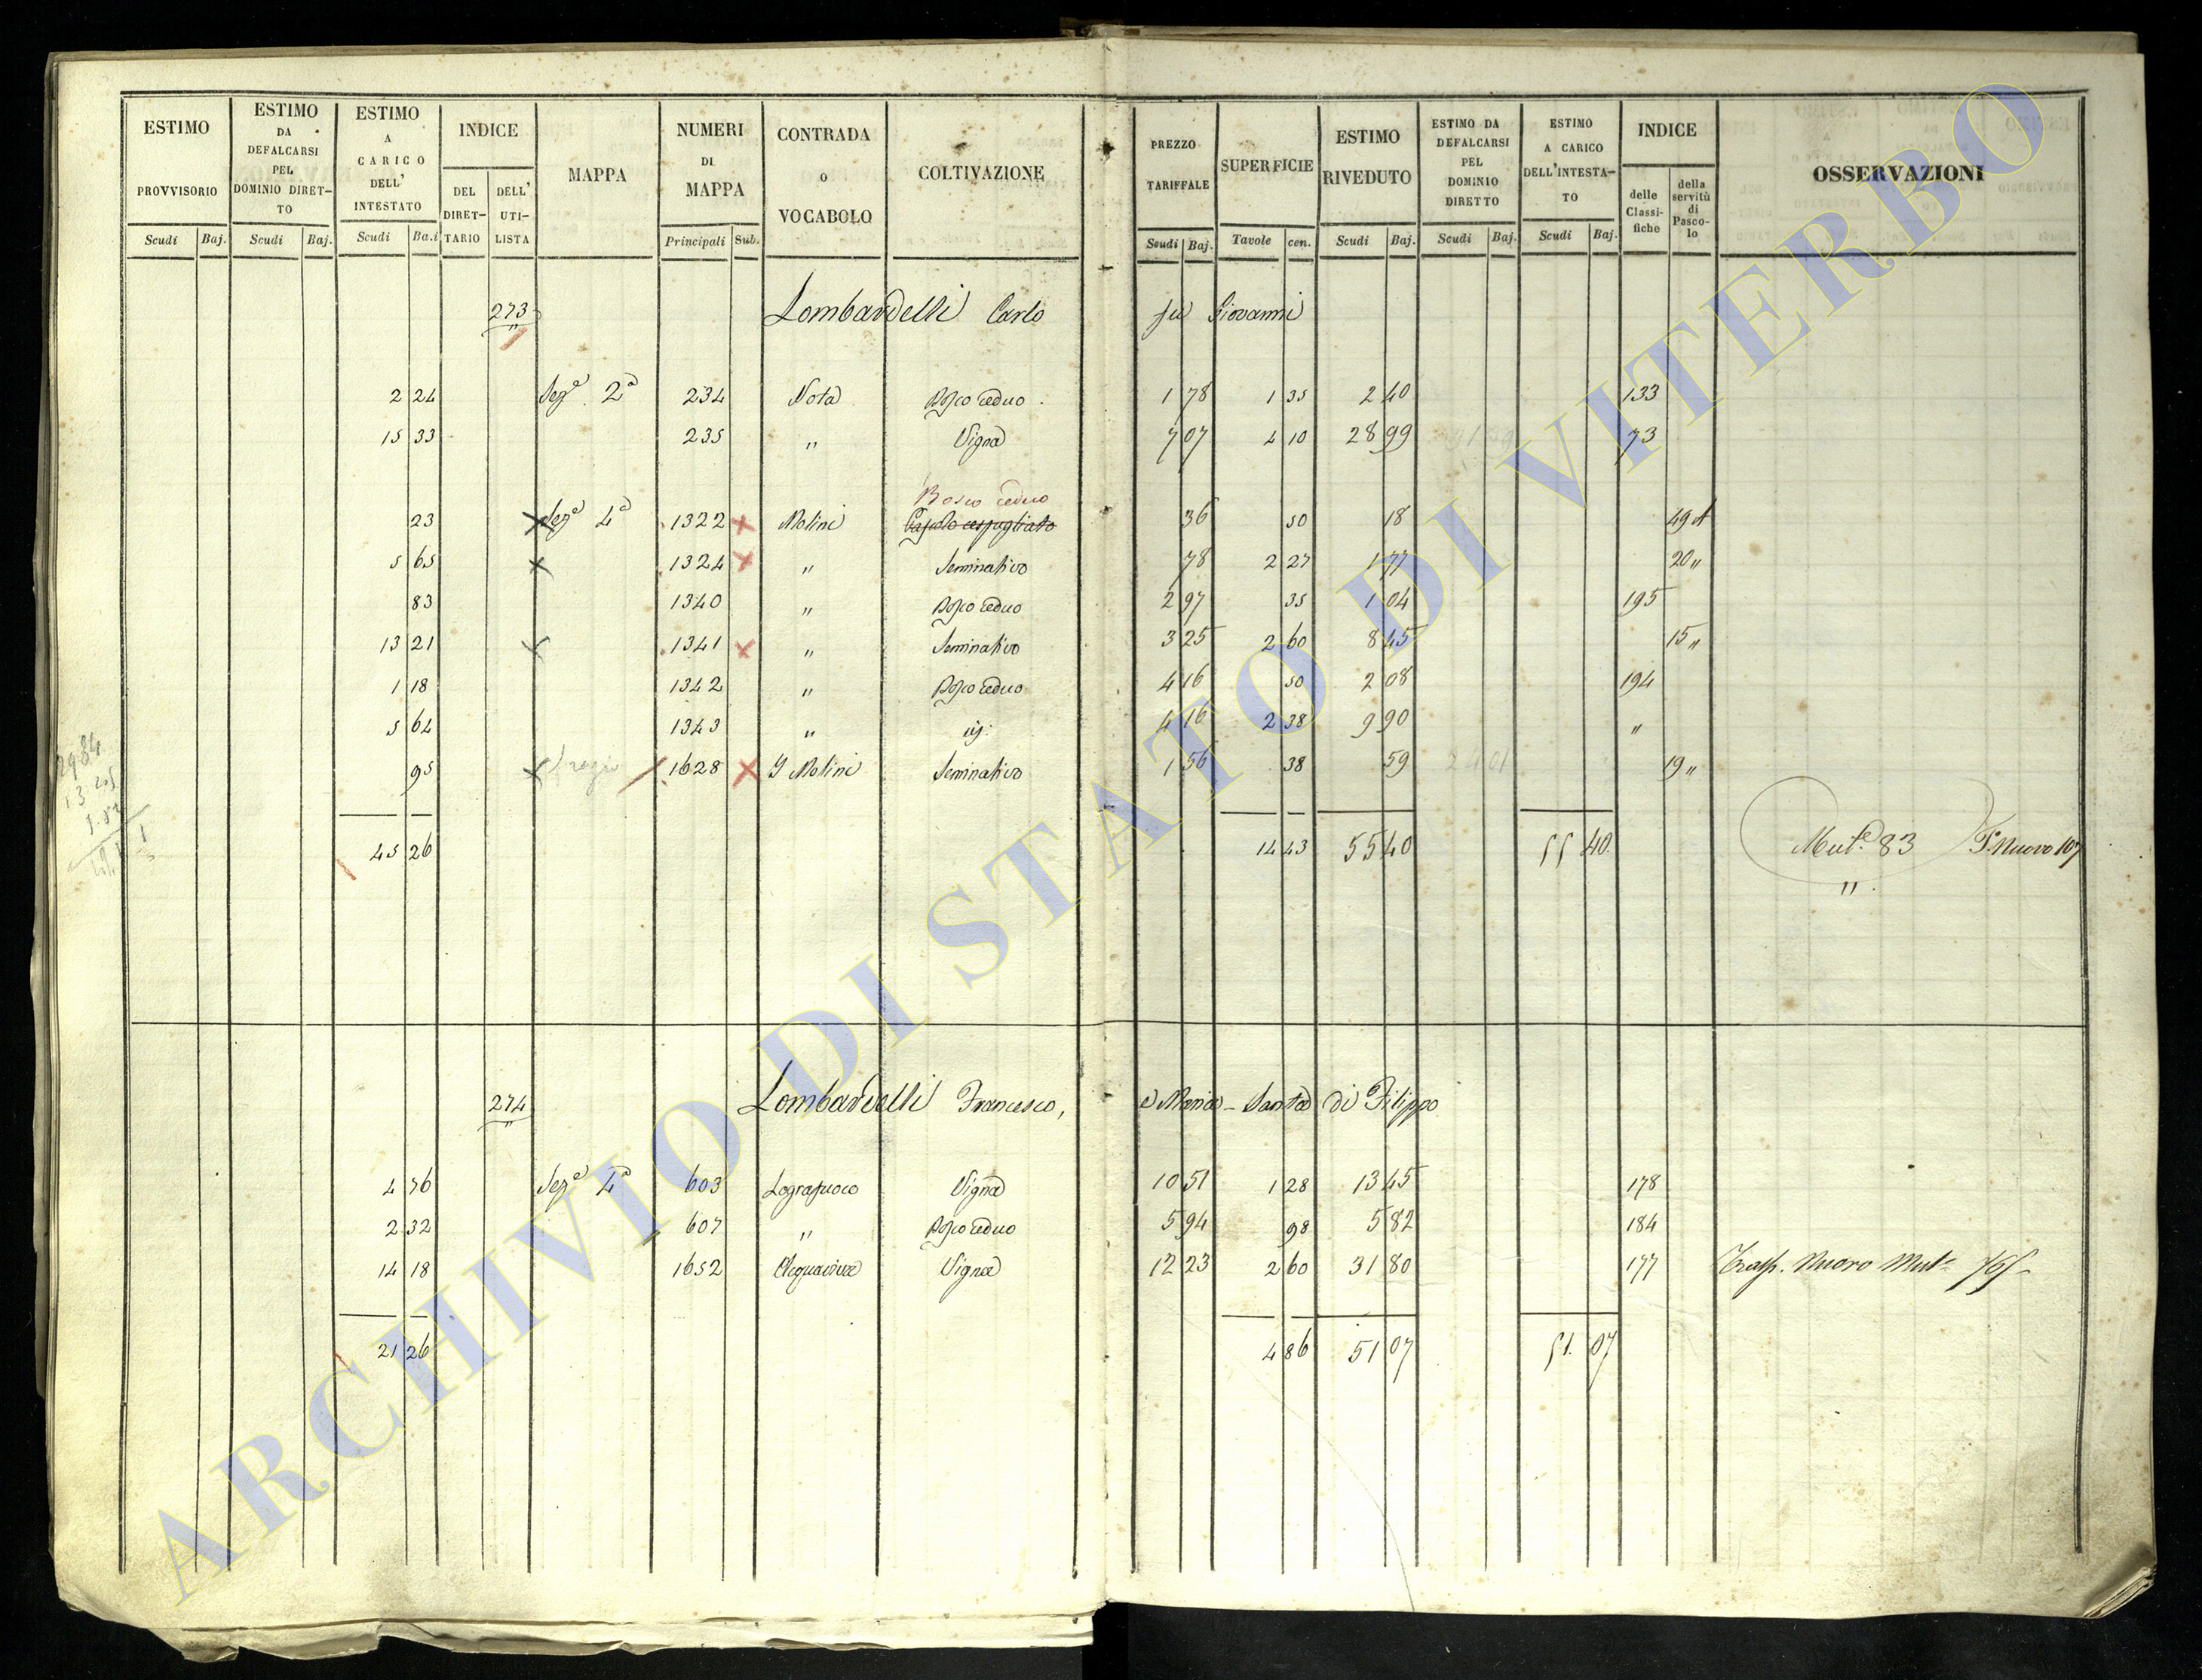 ESTIMO PROVVISORIO | ESTIMO DA DEFALCARSI PEL DOMINIO DIRET-TO | ESTIMO A CARICO DELL' INTESTATO | INDICE | MAPPA | NUMERI DI MAPPA | CONTRADA O VOCABOLO | COLTIVAZIONE | PREZZO TARIFFALE | SUPERFICIE | ESTIMO RIVEDUTO | ESTIMO DA DEFALCARSI PEL DOMINIO DIRETTO | ESTIMO A CARICO DELL'INTESTA-TO | INDICE | OSSERVAZIONI
DEL DIRET-TARIO | DELL' UTI-LISTA | delle Classi-fiche | della servitù di Pasco-lo
Scudi | Baj. | Scudi | Baj. | Scudi | Ba.i | Principali | Sub. | Scudi | Baj. | Tavole | cen. | Scudi | Baj. | Scudi | Baj. | Scudi | Baj.
273 Lombardelli Carlo fu Giovanni
2 24 Sez.e 2a 234 Nota Bosco ceduo 1 78 1 35 2 40 133
15 33 235 " Vigna 7 07 4 10 28 99 73
Bosco ceduo
23 Sez.e 4a 1322 Molini Pascolo cespugliato 36 50 18 49 A
5 65 1324 " Seminativo 78 2 27 1 77 20 "
83 1340 " Bosco ceduo 2 97 35 1 04 195
13 21 1341 " Seminativo 3 25 2 60 8 45 15 "
1 18 1342 " Bosco ceduo 4 16 50 2 08 194
5 64 1343 " 4 16 2 38 9 90 "
95 1628 I Molini Seminativo 1 56 38 59 19 "
45 26 14 43 55 40 55 40 Mut.e 83 P. Nuovo 107
"
274 Lombardelli Francesco, e Maria - Santa di Filippo
4 76 Sez.e 4a 603 Lografuoco Vigna 10 51 1 28 13 45 178
2 32 607 " Bosco ceduo 5 94 98 5 82 184
14 18 1652 Acquaviva Vigna 12 23 2 60 31 80 177 Trasp. Nuovo Mut.e
21 26 4 86 51 07 51. 07
ARCHIVIO DI STATO DI VITERBO